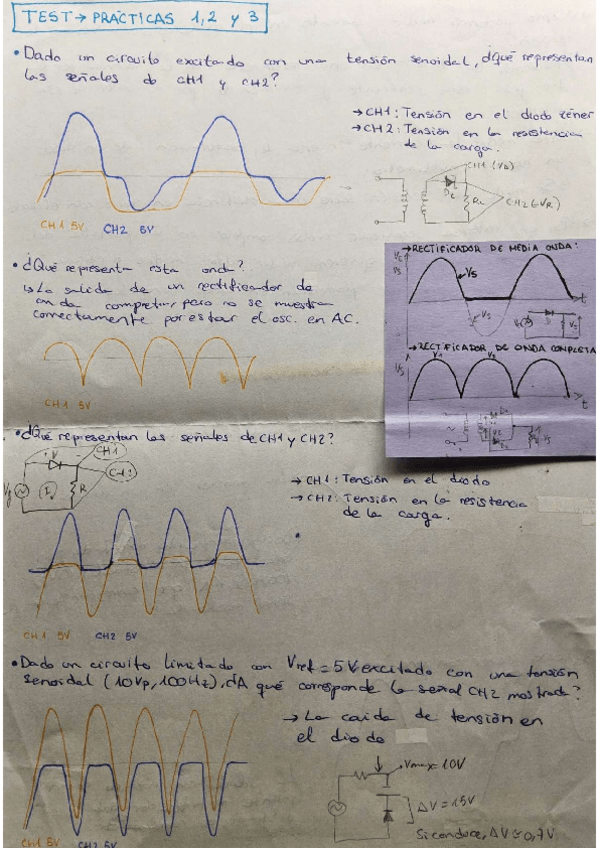 TEST → PRÁCTICAS 1, 2 y 3
• Dado un circuito excitado con una tensión senoidal, ¿Qué representan
las señales de CH1 y CH2?
→ CH1: Tensión en el diodo zéner
→ CH2: Tensión en la resistencia
de la carga.
CH1 (VD)
Dz
RL
CH2 (-VR)
CH1 5V CH2 5V
• ¿Qué representa esta onda?
↳ La salida de un rectificador de
onda completa, pero no se muestra
correctamente por estar el osc. en AC.
CH1 5V
→ RECTIFICADOR DE MEDIA ONDA:
Vs
t
→ RECTIFICADOR DE ONDA COMPLETA
V1
t
• ¿Qué representan las señales de CH1 y CH2?
CH1
Vg
R
→ CH1: Tensión en el diodo
→ CH2: Tensión en la resistencia
de la carga.
CH1 5V CH2 5V
• Dado un circuito limitado con Vref = 5V excitado con una tensión
senoidal (10Vp, 100Hz), ¿A qué corresponde la señal CH2 mostrada?
→ La caida de tensión en
el diodo
Vmax = 10V
Si conduce, ΔV ≈ 0,7V
CH1 5V CH2 5V